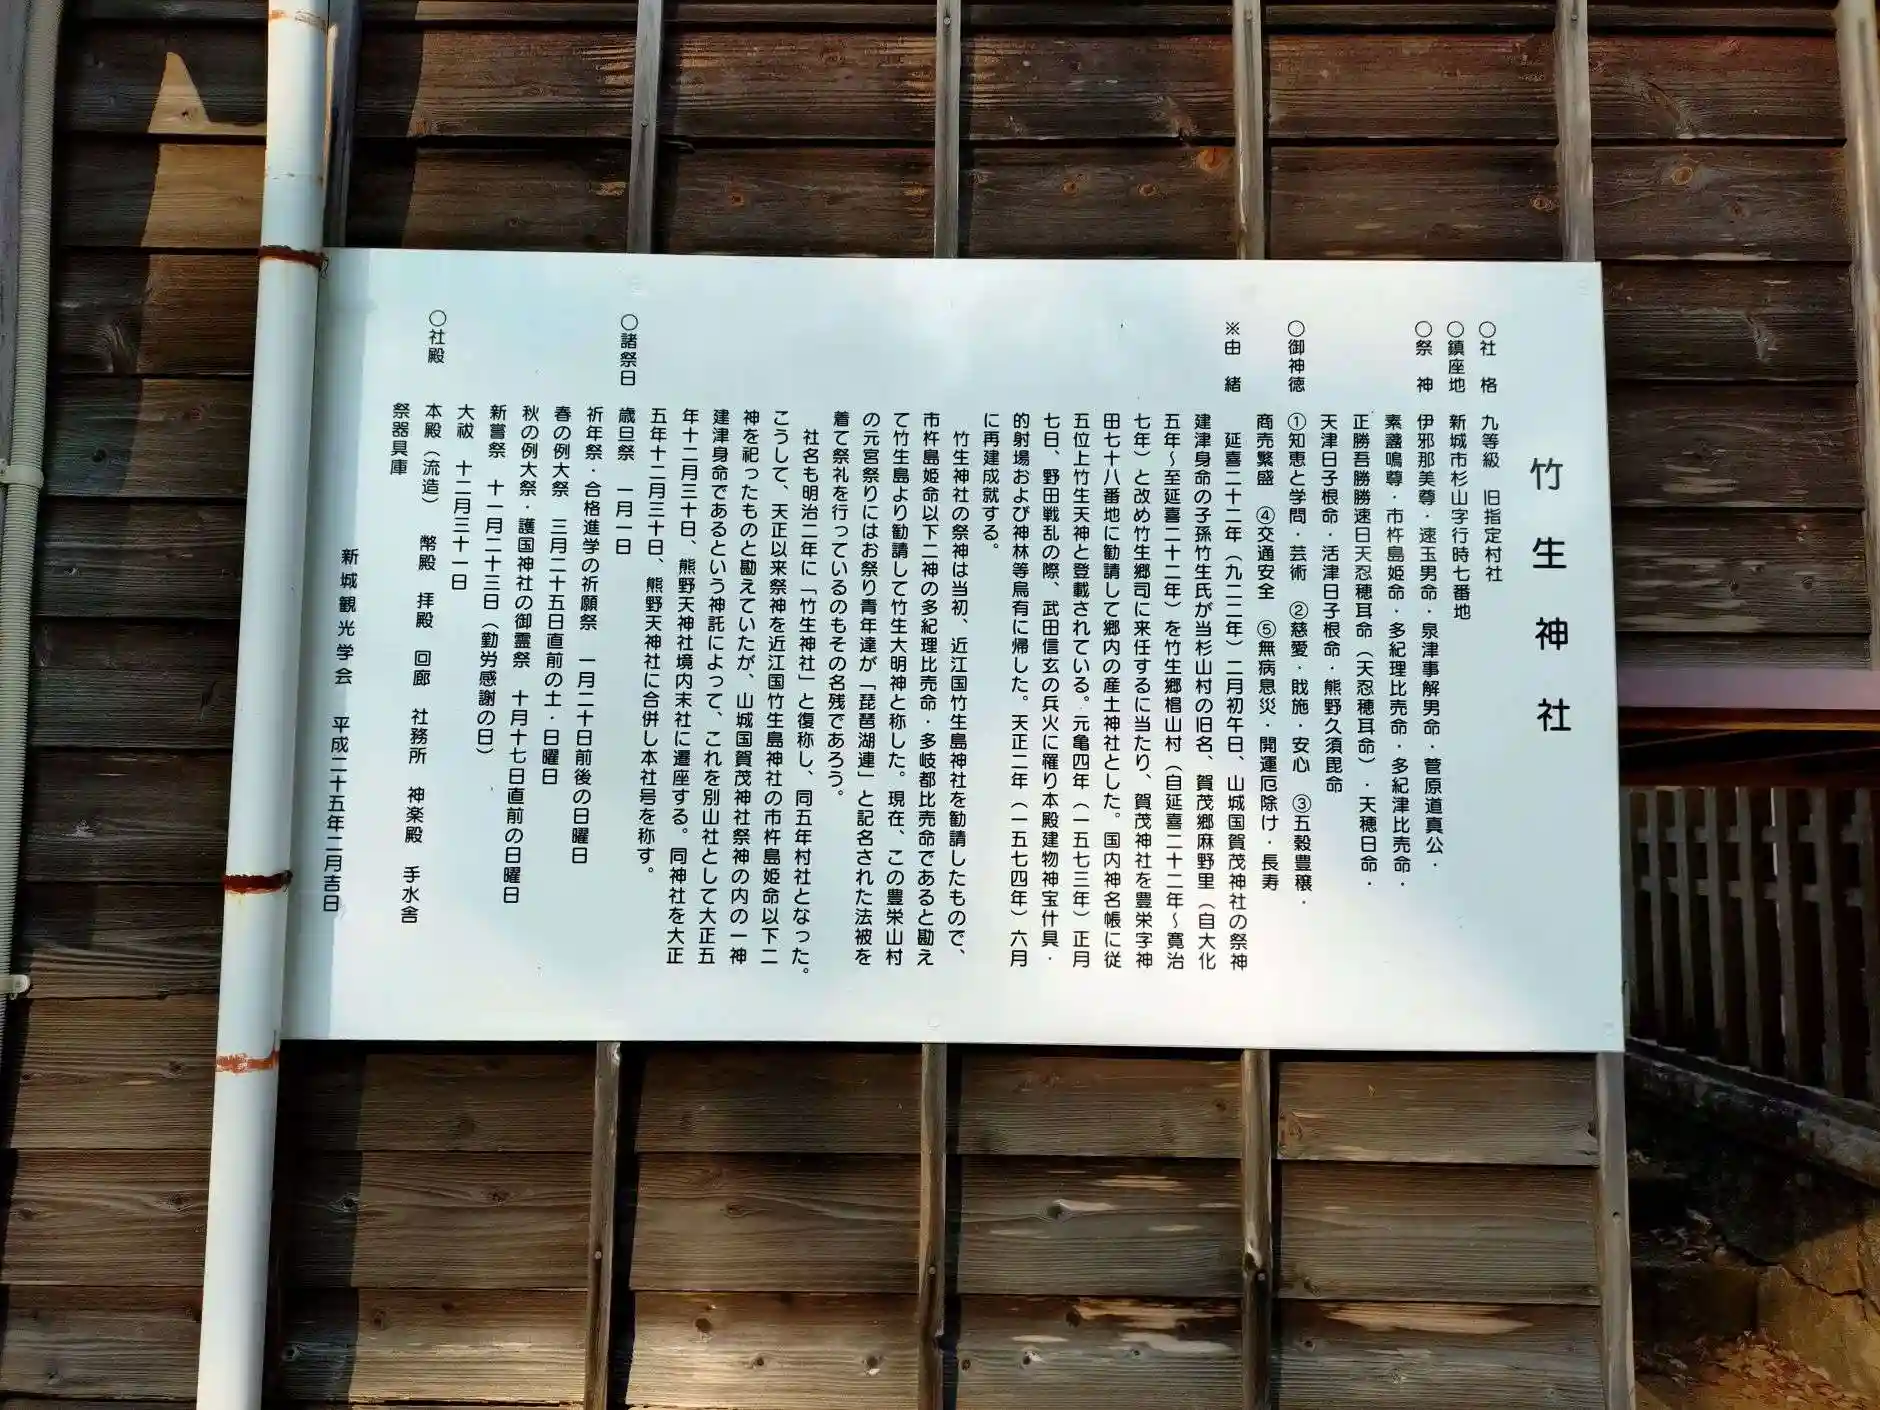 竹生神社
○社　格　九等級　旧指定村社
○鎮座地　新城市杉山字行時七番地
○祭　神　伊邪那美尊・速玉男命・泉津事解男命・菅原道真公・
素盞鳴尊・市杵島姫命・多紀理比売命・多紀津比売命・
正勝吾勝勝速日天忍穂耳命（天忍穂耳命）・天穂日命・
天津日子根命・活津日子根命・熊野久須毘命
○御神徳　①知恵と学問・芸術　②慈愛・財施・安心　③五穀豊穣・
商売繁盛　④交通安全　⑤無病息災・開運厄除け・長寿
※由　緒　延喜二十二年（九二二年）二月初午日、山城国賀茂神社の祭神
建津身命の子孫竹生氏が当杉山村の旧名、賀茂郷麻野里（自大化
五年～至延喜二十二年）を竹生郷椙山村（自延喜二十二年～寛治
七年）と改め竹生郷司に来任するに当たり、賀茂神社を豊栄字神
田七十八番地に勧請して郷内の産土神社とした。国内神名帳に従
五位上竹生天神と登載されている。元亀四年（一五七三年）正月
七日、野田戦乱の際、武田信玄の兵火に罹り本殿建物神宝什具・
的射場および神林等烏有に帰した。天正二年（一五七四年）六月
に再建成就する。
竹生神社の祭神は当初、近江国竹生島神社を勧請したもので、
市杵島姫命以下二神の多紀理比売命・多岐都比売命であると勘え
て竹生島より勧請して竹生大明神と称した。現在、この豊栄山村
の元宮祭りにはお祭り青年達が「琵琶湖連」と記名された法被を
着て祭礼を行っているのもその名残であろう。
社名も明治二年に「竹生神社」と復称し、同五年村社となった。
こうして、天正以来祭神を近江国竹生島神社の市杵島姫命以下二
神を祀ったものと勘えていたが、山城国賀茂神社祭神の内の一神
建津身命であるという神託によって、これを別山社として大正五
年十二月三十日、熊野天神社境内末社に遷座する。同神社を大正
五年十二月三十日、熊野天神社に合併し本社号を称す。
○諸祭日　歳旦祭　一月一日
祈年祭・合格進学の祈願祭　一月二十日前後の日曜日
春の例大祭　三月二十五日直前の土・日曜日
秋の例大祭・護国神社の御霊祭　十月十七日直前の日曜日
新嘗祭　十一月二十三日（勤労感謝の日）
大祓　十二月三十一日
○社殿　本殿（流造）　幣殿　拝殿　回廊　社務所　神楽殿　手水舎
祭器具庫
新城観光学会　平成二十五年二月吉日